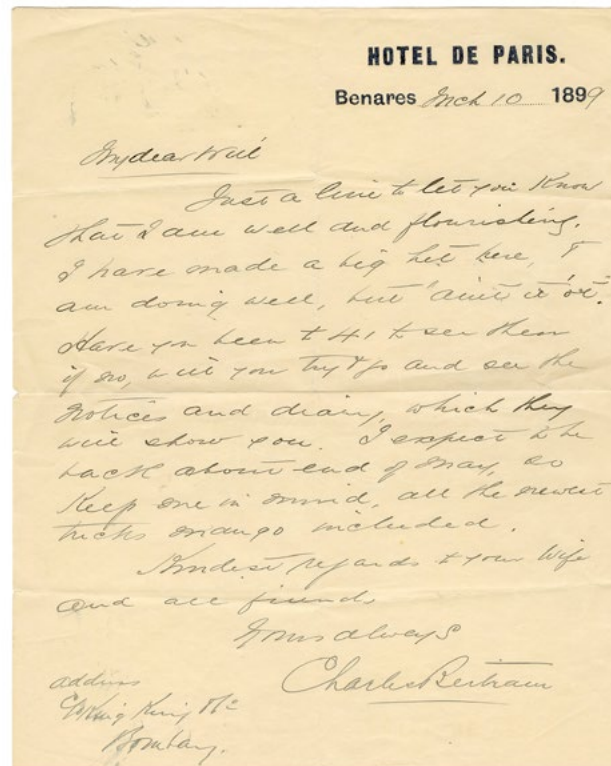 HOTEL DE PARIS.
Benares Mch 10 1899
My dear Will
Just a line to let you know
that I am well and flourishing.
I have made a big hit here, &
am doing well, but "ain't it 'ot".
Have you been to 41 to see them
if no, will you try & go and see the
notices and diary, which they
will show you. I expect to be
back about end of May, so
keep me in mind, all the newest
tricks mango included.
Kindest regards to your Wife
and all friends
Yours always
Charles Bertram
address
King King &
Bombay.